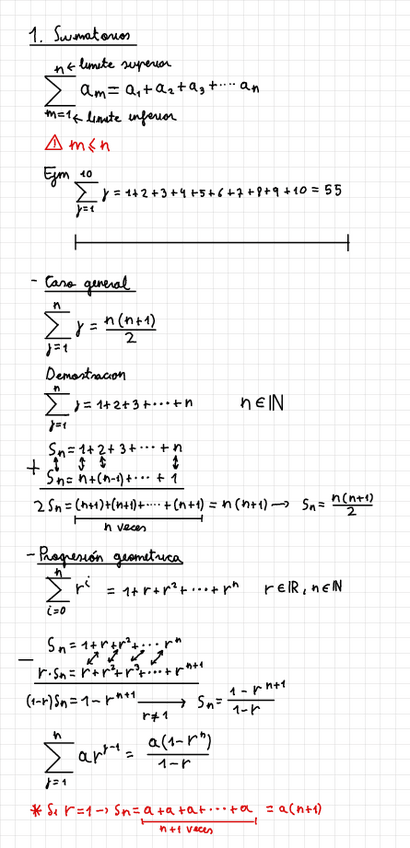 1. Sumatorios
n ← límite superior
∑ aₘ = a₁ + a₂ + a₃ + ···· aₙ
m=1 ← límite inferior
⚠ m ≤ n
Ejm 10
∑ j = 1+2+3+4+5+6+7+8+9+10 = 55
j=1
- Caso general
n
∑ j = n(n+1)/2
j=1
Demostración
n
∑ j = 1+2+3+···+n n∈ℕ
j=1
Sₙ = 1+2+3+···+n
+ Sₙ = n+(n-1)+···+1
2Sₙ = (n+1)+(n+1)+····+(n+1) = n(n+1) → Sₙ = n(n+1)/2
n veces
- Progresión geométrica
n
∑ rⁱ = 1+r+r²+···+rⁿ r∈ℝ, n∈ℕ
i=0
Sₙ = 1+r+r²+··· rⁿ
− r·Sₙ = r+r²+r³+···+rⁿ⁺¹
(1-r)Sₙ = 1-rⁿ⁺¹ → r≠1 Sₙ = (1-rⁿ⁺¹)/(1-r)
n
∑ arʲ⁻¹ = a(1-rⁿ)/(1-r)
j=1
* Si r=1 → Sₙ = a+a+a+···+a = a(n+1)
n+1 veces